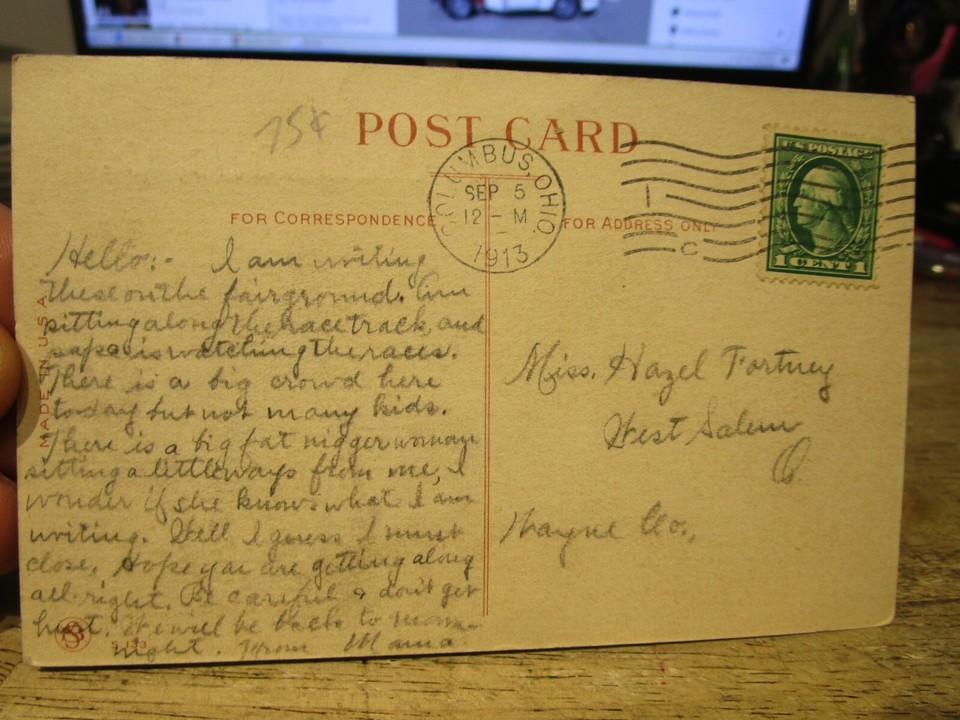 75¢
POST CARD
COLUMBUS, OHIO
SEP 5
12 - M
1913
1
C
U.S. POSTAGE
1 CENT 1
FOR CORRESPONDENCE
FOR ADDRESS ONLY
MADE IN U.S.A.
Hello:- I am writing
these on the fairground. Am
sitting along the race track and
papa is watching the races.
There is a big crowd here
today but not many kids.
There is a big fat nigger woman
sitting a little ways from me, I
wonder if she knows what I am
writing. Well I guess I must
close. Hope you are getting along
all right. Be careful & don't get
hurt. We will be back to
night. From Mama
Miss. Hazel Fortney
West Salem
O.
Wayne Co.,